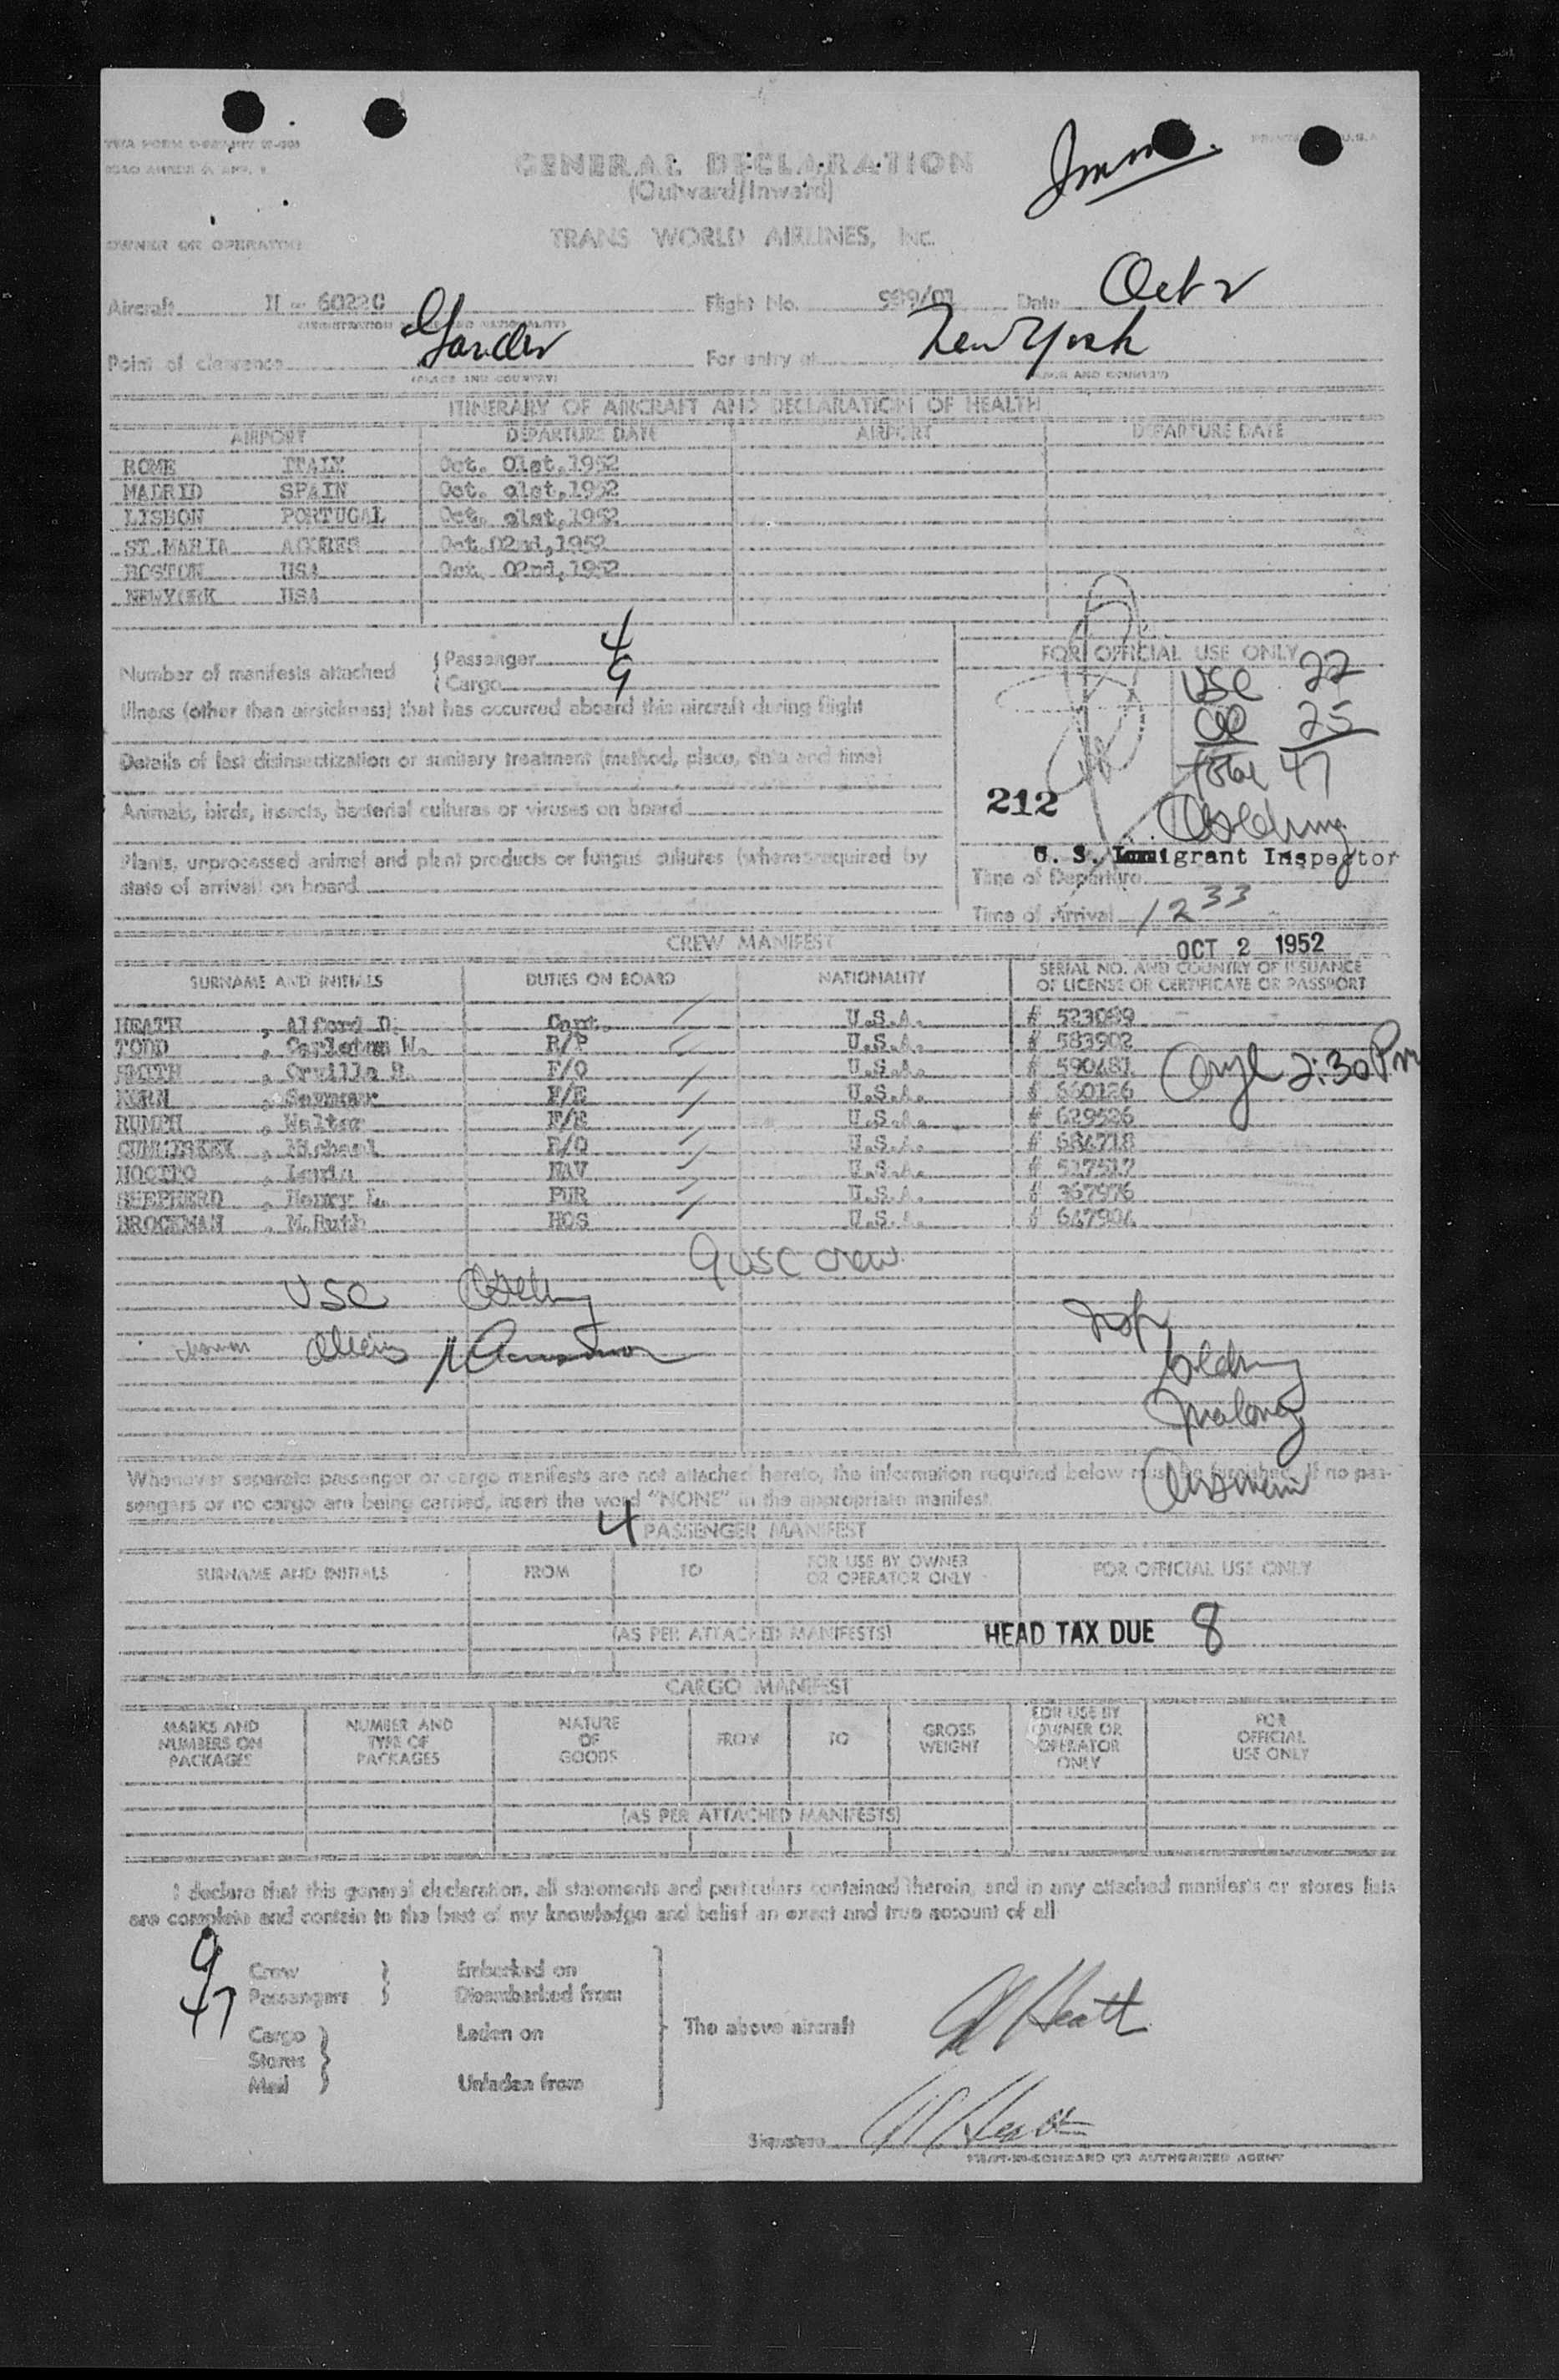 GENERAL DECLARATION
(Outward/Inward)
Imm.
TRANS WORLD AIRLINES, Inc.
OWNER OR OPERATOR
Aircraft Flight No. Date Oct 2
Point of clearance Gander For entry at New York
(PLACE AND COUNTRY) (PLACE AND COUNTRY)
ITINERARY OF AIRCRAFT AND DECLARATION OF HEALTH
AIRPORT DEPARTURE DATE AIRPORT DEPARTURE DATE
ROME ITALY Oct. 01st,1952
MADRID SPAIN Oct. 01st,1952
LISBON PORTUGAL Oct. 01st,1952
ST.MARIA AZORES Oct.02nd,1952
BOSTON USA Oct. 02nd,1952
NEWYORK USA
Number of manifests attached { Passenger 4
{ Cargo 9
FOR OFFICIAL USE ONLY
USC 22
25
Total 47
Illness (other than airsickness) that has occurred aboard this aircraft during flight
Details of last disinsectization or sanitary treatment (method, place, date and time)
Animals, birds, insects, bacterial cultures or viruses on board
212
U. S. Immigrant Inspector
Plants, unprocessed animal and plant products or fungus cultures (where required by
state of arrival) on board
Time of Departure
Time of Arrival 12 33
OCT 2 1952
CREW MANIFEST
SURNAME AND INITIALS DUTIES ON BOARD NATIONALITY SERIAL NO. AND COUNTRY OF ISSUANCE
OF LICENSE OR CERTIFICATE OR PASSPORT
HEATH , Alford D. Capt. U.S.A. # 523089
TODD , Carleton W. R/P U.S.A. # 583902
SMITH , Orville R. F/O U.S.A. # 590481
KERN , Seymour F/E U.S.A. # 660126
RUMPH , Walter F/E U.S.A. # 629526
CUMMISKEY , Michael R/O U.S.A. # 684718
NOCITO , Louis NAV U.S.A. # 517517
SHEPHERD , Henry L. PUR U.S.A. # 367976
BROCKMAN , M.Ruth HOS U.S.A. # 647904
2:30 Pm
9 USC crew
USC
Insp
Goldring
Maloney
Whenever separate passenger or cargo manifests are not attached hereto, the information required below must be furnished. If no pas-
sengers or no cargo are being carried, insert the word "NONE" in the appropriate manifest.
4 PASSENGER MANIFEST
SURNAME AND INITIALS FROM TO FOR USE BY OWNER
OR OPERATOR ONLY FOR OFFICIAL USE ONLY
(AS PER ATTACHED MANIFESTS) HEAD TAX DUE 8
CARGO MANIFEST
MARKS AND
NUMBERS ON
PACKAGES
NUMBER AND
TYPE OF
PACKAGES
NATURE
OF
GOODS
FROM
TO
GROSS
WEIGHT
FOR USE BY
OWNER OR
OPERATOR
ONLY
FOR
OFFICIAL
USE ONLY
(AS PER ATTACHED MANIFESTS)
I declare that this general declaration, all statements and particulars contained therein, and in any attached manifests or stores lists
are complete and contain to the best of my knowledge and belief an exact and true account of all
9 Crew } Embarked on
47 Passengers } Disembarked from
Cargo } Laden on
Stores }
Mail } Unladen from
The above aircraft A D Heath
Signature A D Heath
PILOT-IN-COMMAND OR AUTHORIZED AGENT